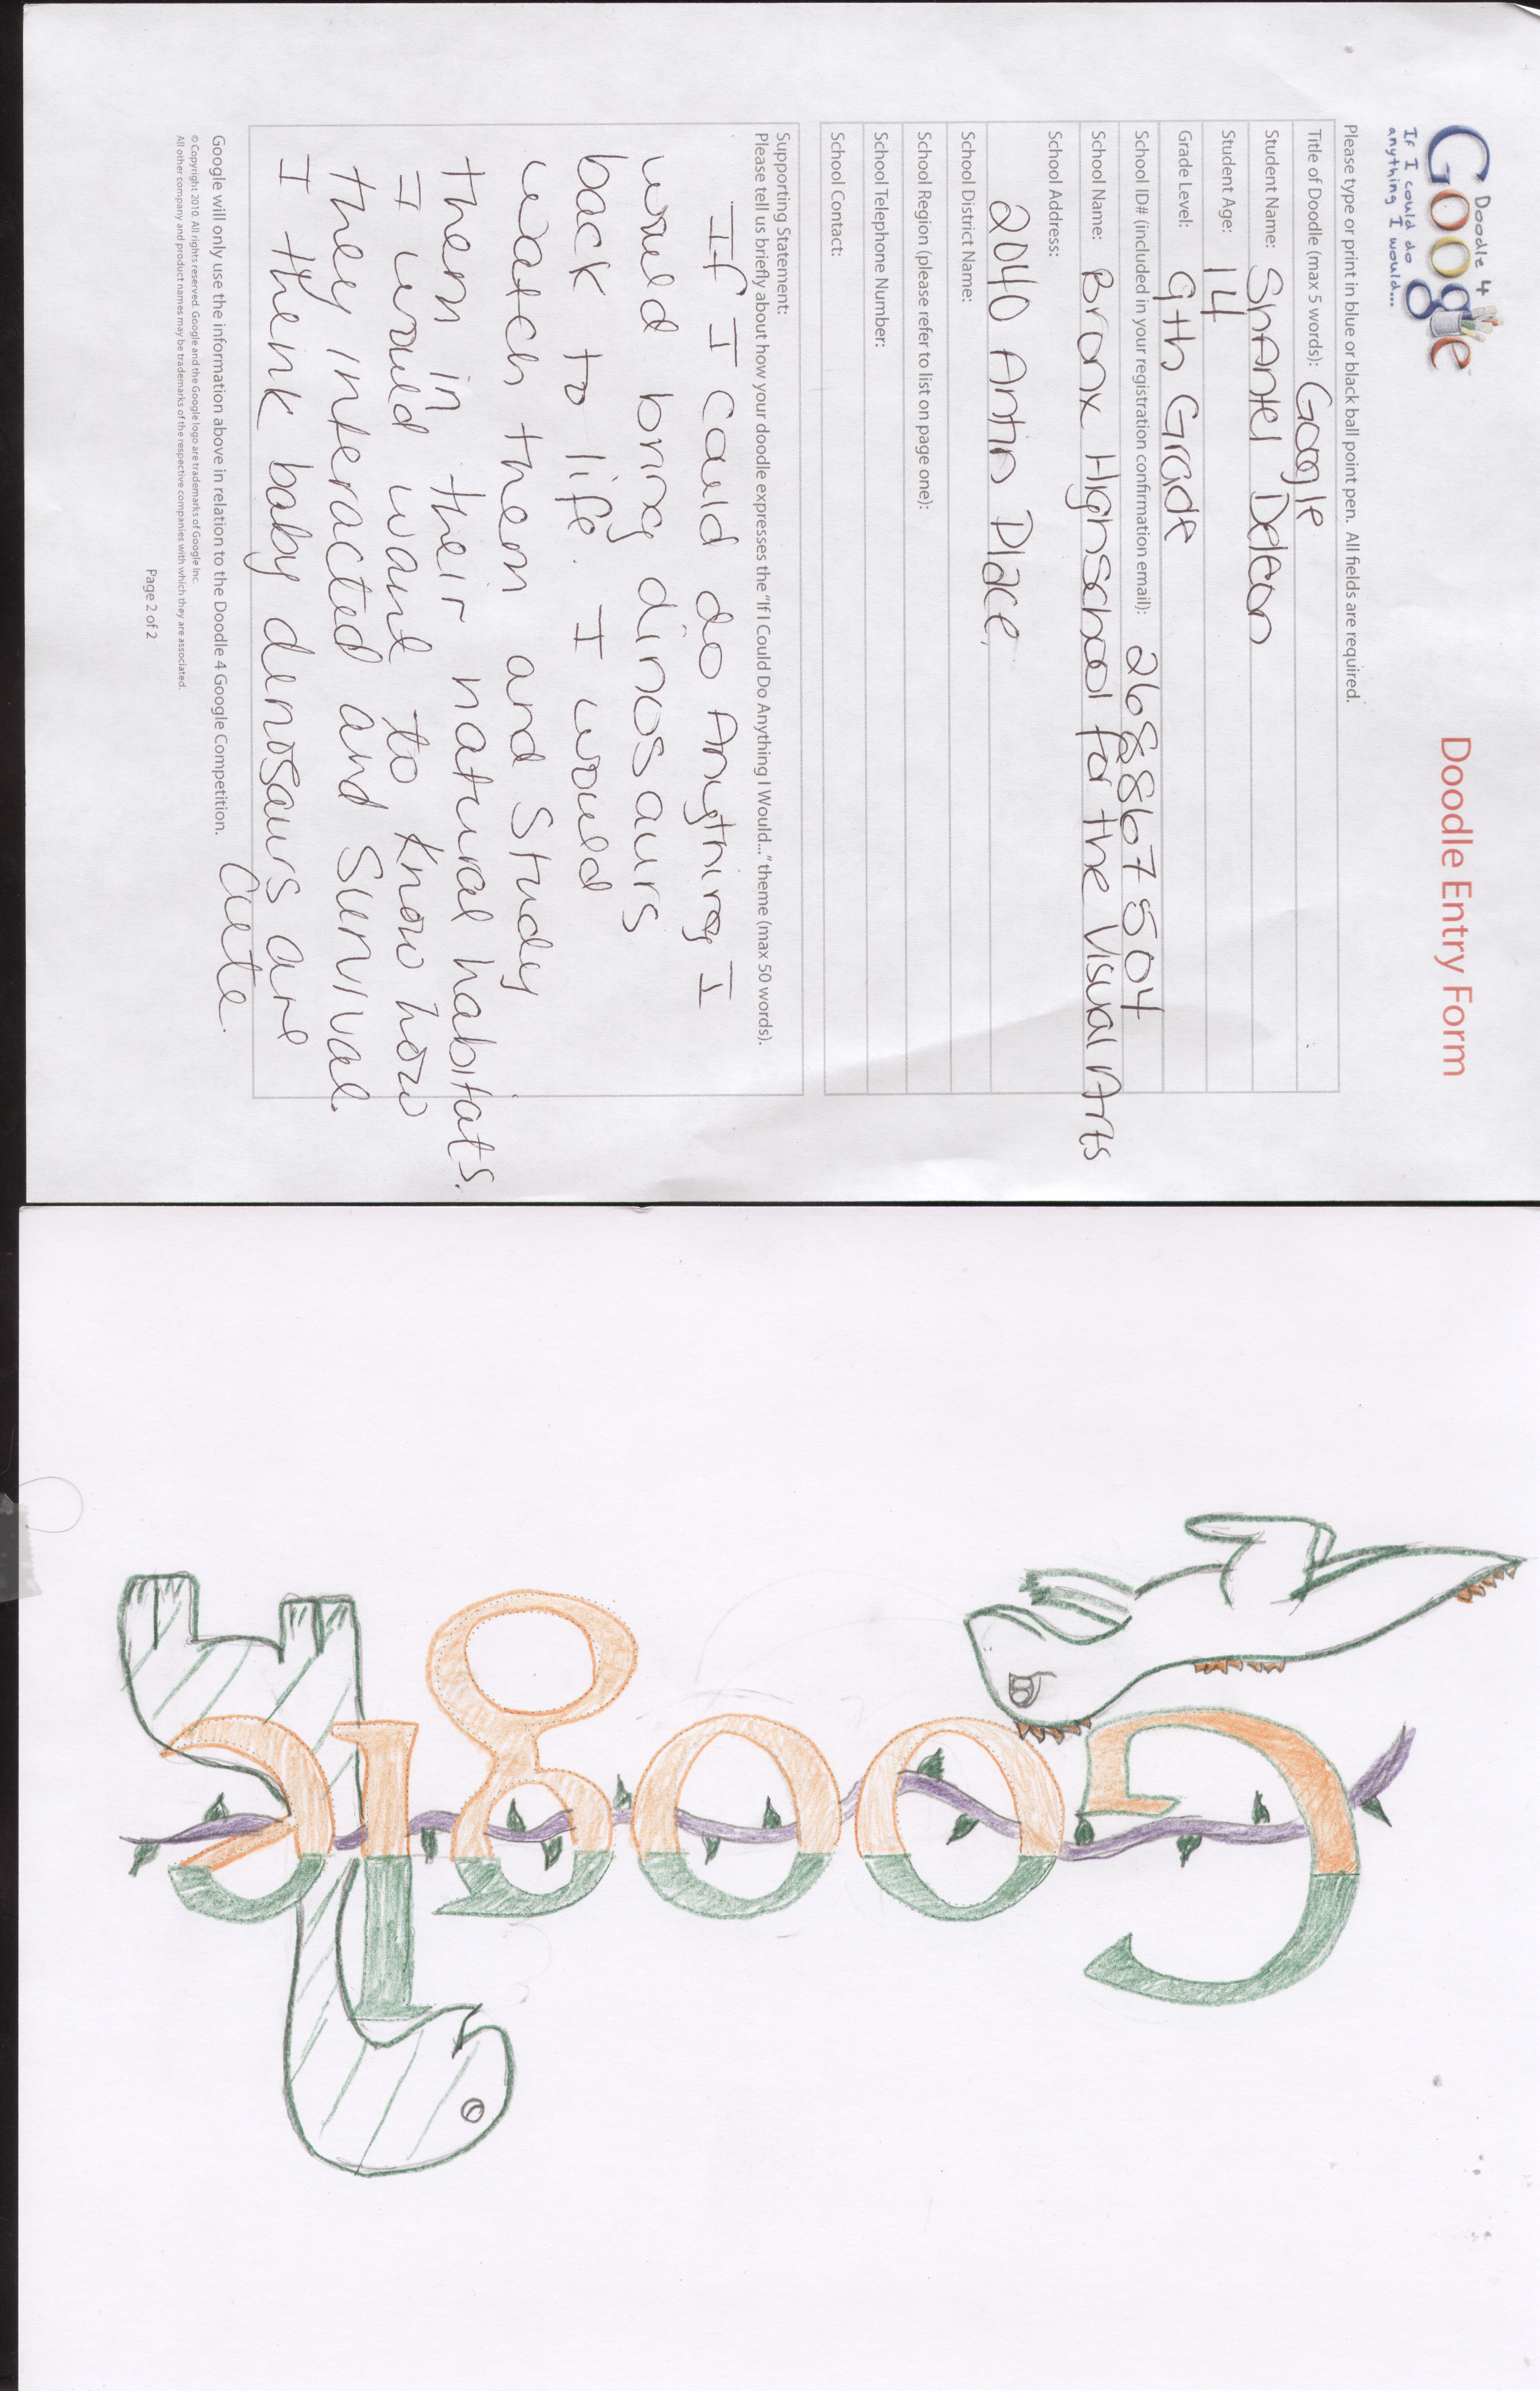 Doodle 4
Google™
If I could do
anything I would...
Doodle Entry Form
Please type or print in blue or black ball point pen. All fields are required.
Title of Doodle (max 5 words): Google
Student Name: Deleon
Student Age: 14
Grade Level: 9th Grade
School ID# (included in your registration confirmation email): 2688867504
School Name: Bronx Highschool for the Visual Arts
School Address:
2040 Antin Place.
School District Name:
School Region (please refer to list on page one):
School Telephone Number:
School Contact:
Supporting Statement:
Please tell us briefly about how your doodle expresses the "If I Could Do Anything I Would..." theme (max 50 words).
If I could do Anything I
would bring dinosaurs
back to life. I would
watch them and study
them in their natural habitats.
I would want to know how
they interacted and survival.
I think baby denosaurs are
cute.
Google will only use the information above in relation to the Doodle 4 Google Competition.
© Copyright 2010. All rights reserved. Google and the Google logo are trademarks of Google Inc.
All other company and product names may be trademarks of the respective companies with which they are associated.
Page 2 of 2
Google